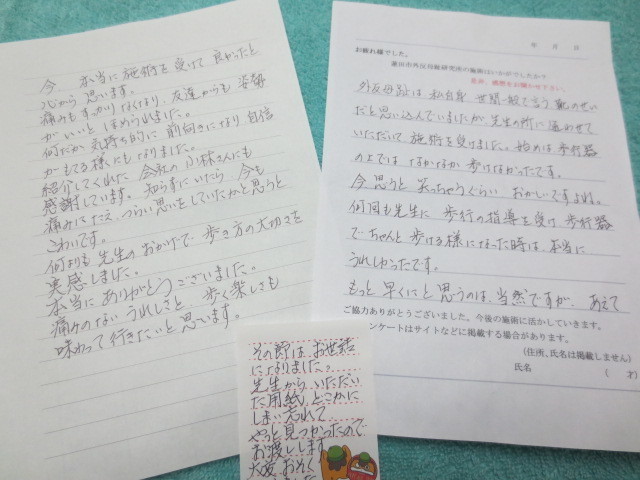 年 月 日
お疲れ様でした。
蓮田市外反母趾研究所の施術はいかがでしたか？
是非、感想をお聞かせ下さい。
外反母趾は、私自身 世間一般で言う 靴のせい
だと思い込んでいましたが、先生の所に通わせて
いただいて 施術を受けました。始めは 歩行器
の上では なかなか歩けなかったです。
今思うと 笑っちゃうぐらい おかしいですよね。
何回も先生に 歩行の指導を受け 歩行器
で ちゃんと 歩ける様になった時は、本当に
うれしかったです。
もっと早くにと思うのは、当然ですが、あえて
ご協力ありがとうございました。今後の施術に活かしていきます。
ンケートはサイトなどに掲載する場合があります。
(住所、氏名は掲載しません)
氏名 ( 才)
今、本当に施術を受けて良かったと
心から思います。
痛みもすっかりなくなり、友達からも 姿勢
がいいと ほめられました。
何だか気持ち的に 前向きになり 自信
がもてる様にもなりました。
紹介してくれた 会社の小林さんにも
感謝しています。知らずにいたら 今も
痛みにたえ、つらい思いをしていたかと思うと
こわいです。
何よりも 先生の おかげで 歩き方の大切さを
実感しました。
本当に ありがとうございました。
痛みのない うれしさと、歩く楽しさも
味わって行きたいと思います。
その節は、お世話
になりました。
先生から いただい
た用紙、どこかに
しまい忘れて
やっと見つかったので
お渡しします
大変、おそく